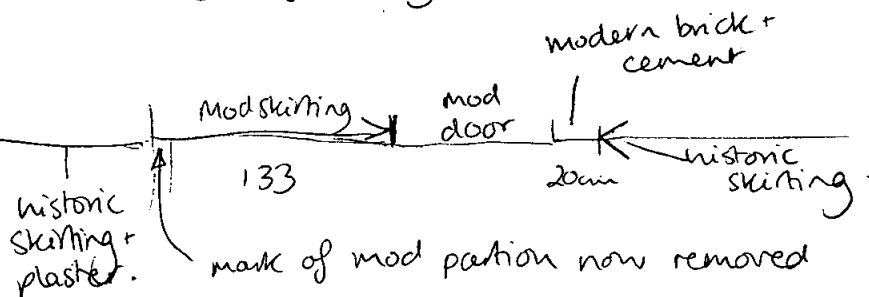 modern brick +
cement
Mod skirting
mod
door
133
20cm
historic
skirting +
plaster.
historic
skirting.
mark of mod partion now removed